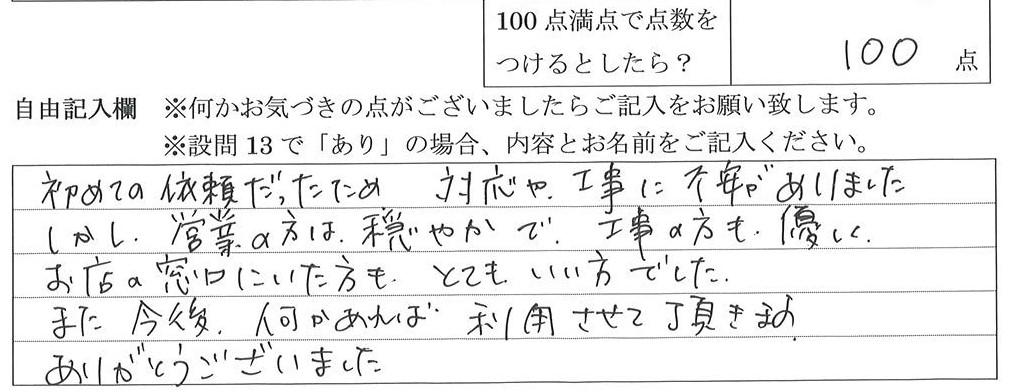 100点満点で点数を
つけるとしたら？
100 点
自由記入欄 ※何かお気づきの点がございましたらご記入をお願い致します。
※設問13で「あり」の場合、内容とお名前をご記入ください。
初めての依頼だったため 対応や、工事に不安がありました
しかし、営業の方は、穏やかで、工事の方も、優しく、
お店の窓口にいた方も、とても いい方でした。
また今後、何かあれば 利用させて頂きます
ありがとうございました